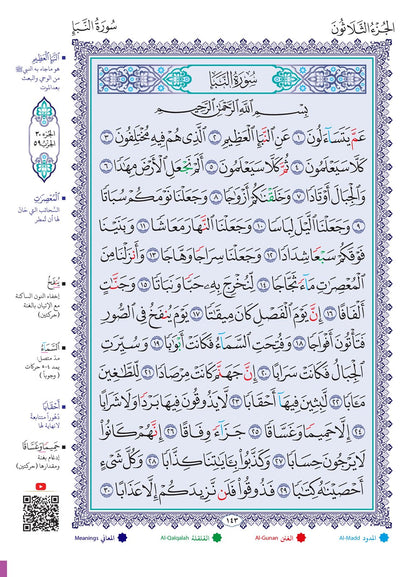 الجُزْءُ الثَّلَاثُونَ
سُورَةُ النَّبَإِ
سُورَةُ النَّبَإِ
بِسْمِ ٱللَّهِ ٱلرَّحْمَٰنِ ٱلرَّحِيمِ
عَمَّ يَتَسَآءَلُونَ ١ عَنِ ٱلنَّبَإِ ٱلْعَظِيمِ ٢ ٱلَّذِى هُمْ فِيهِ مُخْتَلِفُونَ ٣
كَلَّا سَيَعْلَمُونَ ٤ ثُمَّ كَلَّا سَيَعْلَمُونَ ٥ أَلَمْ نَجْعَلِ ٱلْأَرْضَ مِهَٰدًا ٦
وَٱلْجِبَالَ أَوْتَادًا ٧ وَخَلَقْنَٰكُمْ أَزْوَٰجًا ٨ وَجَعَلْنَا نَوْمَكُمْ سُبَاتًا
٩ وَجَعَلْنَا ٱلَّيْلَ لِبَاسًا ١٠ وَجَعَلْنَا ٱلنَّهَارَ مَعَاشًا ١١ وَبَنَيْنَا
فَوْقَكُمْ سَبْعًا شِدَادًا ١٢ وَجَعَلْنَا سِرَاجًا وَهَّاجًا ١٣ وَأَنزَلْنَا مِنَ
ٱلْمُعْصِرَٰتِ مَآءً ثَجَّاجًا ١٤ لِّنُخْرِجَ بِهِۦ حَبًّا وَنَبَاتًا ١٥ وَجَنَّٰتٍ
أَلْفَافًا ١٦ إِنَّ يَوْمَ ٱلْفَصْلِ كَانَ مِيقَٰتًا ١٧ يَوْمَ يُنفَخُ فِى ٱلصُّورِ
فَتَأْتُونَ أَفْوَاجًا ١٨ وَفُتِحَتِ ٱلسَّمَآءُ فَكَانَتْ أَبْوَٰبًا ١٩ وَسُيِّرَتِ
ٱلْجِبَالُ فَكَانَتْ سَرَابًا ٢٠ إِنَّ جَهَنَّمَ كَانَتْ مِرْصَادًا ٢١ لِّلطَّٰغِينَ
مَـَٔابًا ٢٢ لَّٰبِثِينَ فِيهَآ أَحْقَابًا ٢٣ لَّا يَذُوقُونَ فِيهَا بَرْدًا وَلَا شَرَابًا
٢٤ إِلَّا حَمِيمًا وَغَسَّاقًا ٢٥ جَزَآءً وِفَاقًا ٢٦ إِنَّهُمْ كَانُوا۟
لَا يَرْجُونَ حِسَابًا ٢٧ وَكَذَّبُوا۟ بِـَٔايَٰتِنَا كِذَّابًا ٢٨ وَكُلَّ شَىْءٍ
أَحْصَيْنَٰهُ كِتَٰبًا ٢٩ فَذُوقُوا۟ فَلَن نَّزِيدَكُمْ إِلَّا عَذَابًا ٣٠
١٤٣
النَّبَإِ الْعَظِيمِ
هو ما جاء به النبي ﷺ
من الوحي والبعث
بعد الموت
الجزء ٣٠
الحزب ٥٩
الْمُعْصِرَٰتِ
السحائب التي حان
لها أن تمطر
يُنفَخُ
إخفاء النون الساكنة
مع الإتيان بالغنة
(حركتين)
السَّمَآءُ
مد متصل
يمد ٤-٥ حركات
(وجوبا)
أَحْقَابًا
دهورا متتابعة
لا نهاية لها
حَمِيمًا وَغَسَّاقًا
إدغام بغنة
ومقدارها (حركتين)
Meanings المعاني
Al-Qalqalah القلقلة
Al-Gunan الغنن
Al-Madd المدود